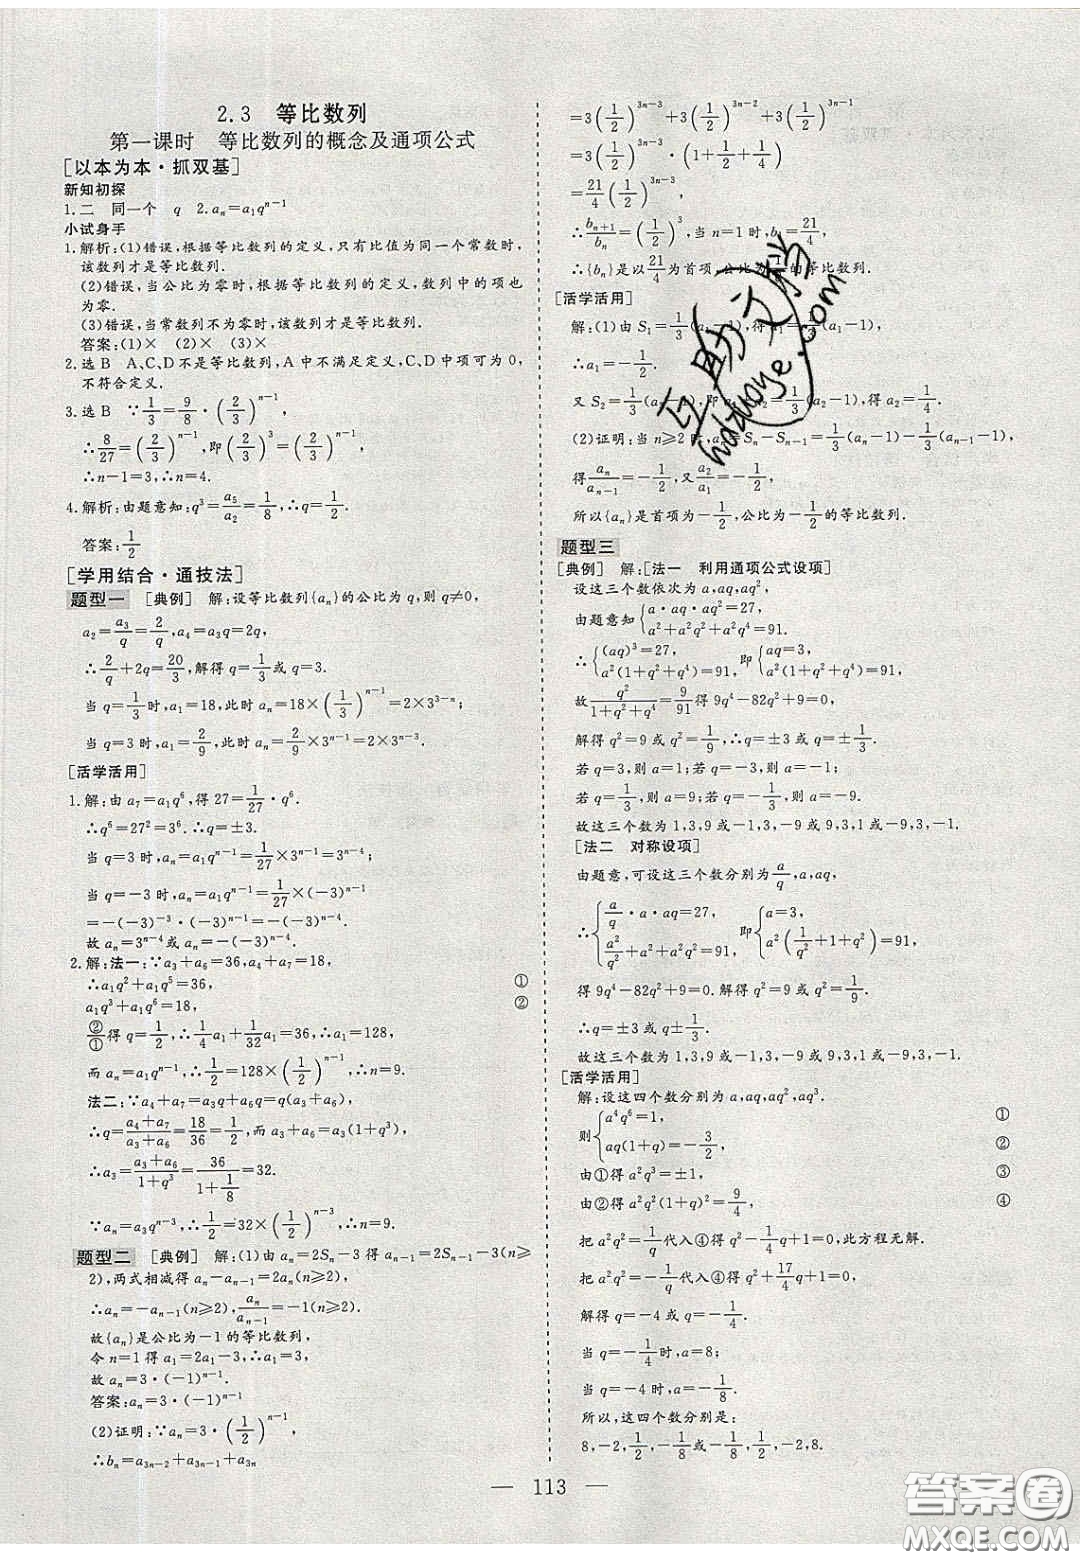 2.3 等比数列
第一课时 等比数列的概念及通项公式
[以本为本·抓双基]
新知初探
1.二 同一个 q 2.aₙ=a₁qⁿ⁻¹
小试身手
1.解析:(1)错误,根据等比数列的定义,只有比值为同一个常数时,
该数列才是等比数列.
(2)错误,当公比为零时,根据等比数列的定义,数列中的项也
为零.
(3)错误,当常数列不为零时,该数列才是等比数列.
答案:(1)× (2)× (3)×
2.选B A、C、D不是等比数列,A中不满足定义,C、D中项可为0,
不符合定义.
3.选B ∵1/3=9/8·(2/3)ⁿ⁻¹,
∴8/27=(2/3)ⁿ⁻¹,即(2/3)³=(2/3)ⁿ⁻¹,
∴n-1=3,∴n=4.
4.解析:由题意知:q³=a₅/a₂=1/8,∴q=1/2.
答案:1/2
[学用结合·通技法]
题型一 [典例] 解:设等比数列{aₙ}的公比为q,则q≠0,
a₂=a₃/q=2/q,a₄=a₃q=2q,
∴2/q+2q=20/3,解得q=1/3或q=3.
当q=1/3时,a₁=18,此时aₙ=18×(1/3)ⁿ⁻¹=2×3³⁻ⁿ;
当q=3时,a₁=2/9,此时aₙ=2/9×3ⁿ⁻¹=2×3ⁿ⁻³.
[活学活用]
1.解:由a₇=a₁q⁶,得27=1/27·q⁶.
∴q⁶=27²=3⁶.∴q=±3.
当q=3时,aₙ=a₁qⁿ⁻¹=1/27×3ⁿ⁻¹=3ⁿ⁻⁴;
当q=-3时,aₙ=a₁qⁿ⁻¹=1/27×(-3)ⁿ⁻¹
=-(-3)⁻³·(-3)ⁿ⁻¹=-(-3)ⁿ⁻⁴.
故aₙ=3ⁿ⁻⁴或aₙ=-(-3)ⁿ⁻⁴.
2.解:法一:∵a₃+a₆=36,a₄+a₇=18,
∴a₁q²+a₁q⁵=36, ①
a₁q³+a₁q⁶=18, ②
②/①得q=1/2,∴1/4a₁+1/32a₁=36,∴a₁=128,
而aₙ=a₁qⁿ⁻¹,∴1/2=128×(1/2)ⁿ⁻¹,∴n=9.
法二:∵a₄+a₇=a₃q+a₆q=q(a₃+a₆),
∴q=a₄+a₇/a₃+a₆=18/36=1/2,而a₃+a₆=a₃(1+q³),
∴a₃=a₃+a₆/1+q³=36/1+1/8=32.
∵aₙ=a₃qⁿ⁻³,∴1/2=32×(1/2)ⁿ⁻³,∴n=9.
题型二 [典例] 解:(1)由aₙ=2Sₙ-3得aₙ₋₁=2Sₙ₋₁-3(n≥
2),两式相减得aₙ-aₙ₋₁=2aₙ(n≥2),
∴aₙ=-aₙ₋₁(n≥2),aₙ/aₙ₋₁=-1(n≥2).
故{aₙ}是公比为-1的等比数列,
令n=1得a₁=2a₁-3,∴a₁=3,
故aₙ=3·(-1)ⁿ⁻¹.
答案:aₙ=3·(-1)ⁿ⁻¹
(2)证明:∵aₙ=3·(1/2)ⁿ⁻¹,
∴bₙ=a₃ₙ₋₂+a₃ₙ₋₁+a₃ₙ
=3(1/2)³ⁿ⁻³+3(1/2)³ⁿ⁻²+3(1/2)³ⁿ⁻¹
=3(1/2)³ⁿ⁻³·(1+1/2+1/4)
=21/4(1/2)³ⁿ⁻³,
∴bₙ₊₁/bₙ=(1/2)³,当n=1时,b₁=21/4,
∴{bₙ}是以21/4为首项,公比为的等比数列.
[活学活用]
解:(1)由S₁=1/3(a₁-1),得a₁=1/3(a₁-1),
∴a₁=-1/2.
又S₂=1/3(a₂-1),即a₁+a₂=1/3(a₂-1),得a₂=1/4.
(2)证明:当n≥2时,aₙ=Sₙ-Sₙ₋₁=1/3(aₙ-1)-1/3(aₙ₋₁-1),
得aₙ/aₙ₋₁=-1/2,又a₂/a₁=-1/2,
所以{aₙ}是首项为-1/2,公比为-1/2的等比数列.
题型三
[典例] 解:[法一 利用通项公式设项]
设这三个数依次为a,aq,aq²,
由题意知{a·aq·aq²=27,
a²+a²q²+a²q⁴=91.
∴{(aq)³=27, 即{aq=3,
a²(1+q²+q⁴)=91, a²(1+q²+q⁴)=91,
故q²/1+q²+q⁴=9/91得9q⁴-82q²+9=0,
解得q²=9或q²=1/9,∴q=±3或q=±1/3.
若q=3,则a=1;若q=-3,则a=-1;
若q=1/3,则a=9;若q=-1/3,则a=-9.
故这三个数为1,3,9或-1,3,-9或9,3,1或-9,3,-1.
[法二 对称设项]
由题意,可设这三个数分别为a/q,a,aq,
∴{a/q·a·aq=27, 即{a=3,
a²/q²+a²+a²q²=91, a²(1/q²+1+q²)=91,
得9q⁴-82q²+9=0.解得q²=9或q²=1/9.
∴q=±3或q=±1/3.
故这三个数为1,3,9或-1,3,-9或9,3,1或-9,3,-1.
[活学活用]
解:设这四个数分别为a,aq,aq²,aq³.
则{a⁴q⁶=1, ①
aq(1+q)=-3/2, ②
由①得a²q³=±1, ③
由②得a²q²(1+q)²=9/4, ④
把a²q²=1/q代入④得q²-1/4q+1=0,此方程无解.
把a²q²=-1/q代入④得q²+17/4q+1=0,
解得q=-4或q=-1/4.
当q=-1/4时,a=8;
当q=-4时,a=-1/8.
所以,这四个数分别是:
8,-2,1/2,-1/8或-1/8,1/2,-2,8.
互助文档
hdzuoye.com
— 113 —
答案圈
MXQE.COM